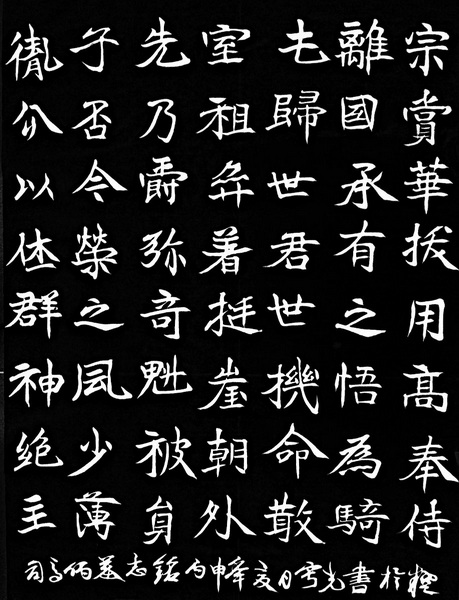 宗賞華拔用高奉侍
離國承有之悟為騎
歸世君世機命散
室祖弈着挺崖朝外
先乃爵弥奇魁被員
子否令榮之風少薄
胤分以体群神絶主
司馬昞墓志銘丙申年夏日雪光書於